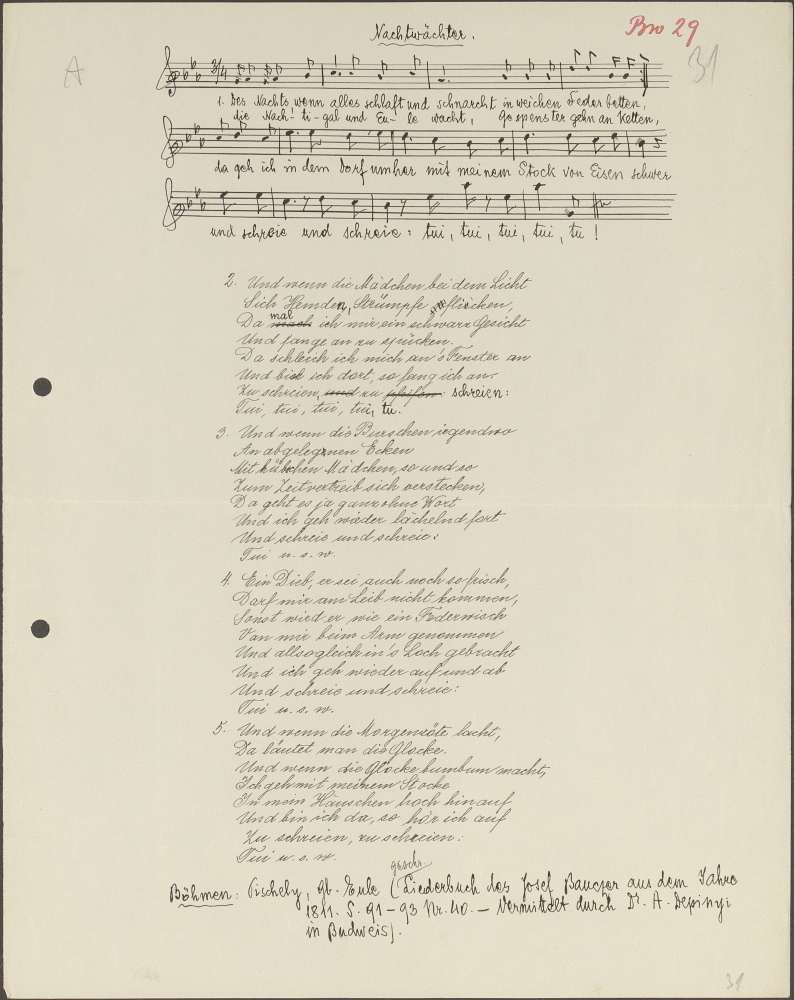 Bw 29
Nachtwächter.
A
31
3/4
1. Des Nachts wenn alles schlaft und schnarcht in weichen Federbetten,
die Nach-ti-gal und Eu-le wacht, Gespenster gehn an Ketten,
da geh ich in dem Dorf umher mit meinem Stock von Eisen schwer
und schreie und schreie: tui, tui, tui, tui, tu!
2. Und wenn die Mädchen bei dem Licht
Sich Hemden, Strümpfe flicken,
Da mal ich mir ein schwarz Gesicht
Und fange an zu spücken.
Da schleich ich mich an's Fenster an
Und bid ich dort, so fang ich an
Zu schreien, und zu pfeifen: schreien:
Tui, tui, tui, tui, tu.
3. Und wenn die Burschen irgendwo
An abgelegnen Ecken
Mit hübschen Mädchen, so und so
Zum Zeitvertreib sich verstecken,
Da geht es ja ganz ohne Wort
Und ich geh wieder lächelnd fort
Und schreie und schreie:
Tui u. s. w.
4. Ein Dieb, er sei auch noch so frisch,
Darf mir am Leib nicht kommen,
Sonst wird er wie ein Federwisch
Von mir beim Arm genommen
Und allsogleich in's Loch gebracht
Und ich geh wieder auf und ab
Und schreie und schreie:
Tui u. s. w.
5. Und wenn die Morgenröte lacht,
Da läutet man die Glocke.
Und wenn die Glocke bumbum macht,
Ich geh mit meinem Stocke
In mein Häuschen hoch hinauf
Und bin ich da, so hör ich auf
Zu schreien, zu schreien:
Tui u. s. w.
geschr.
Böhmen: Pischely, gb. Eule (Liederbuch des Josef Baucser aus dem Jahre
1811. S. 91-93 Nr. 40. — Vermittelt durch Dr. A. Depinyi
in Budweis).
31